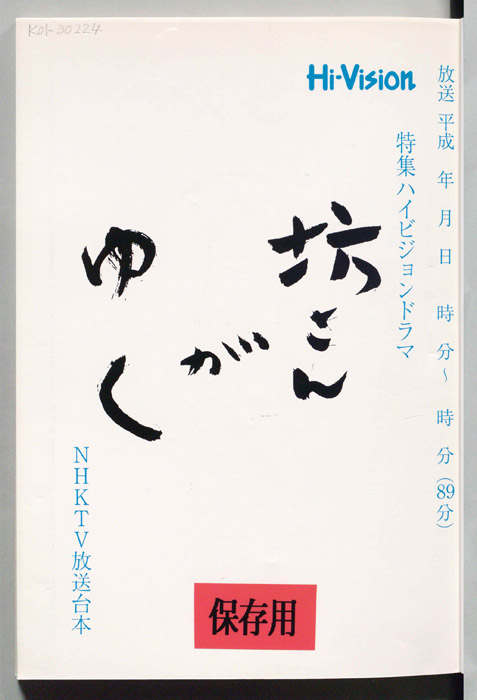 K01-30224
Hi-Vision
放送 平成 年 月 日 時 分~ 時 分(89分)
特集ハイビジョンドラマ
坊さん
が
ゆく
NHKTV放送台本
保存用